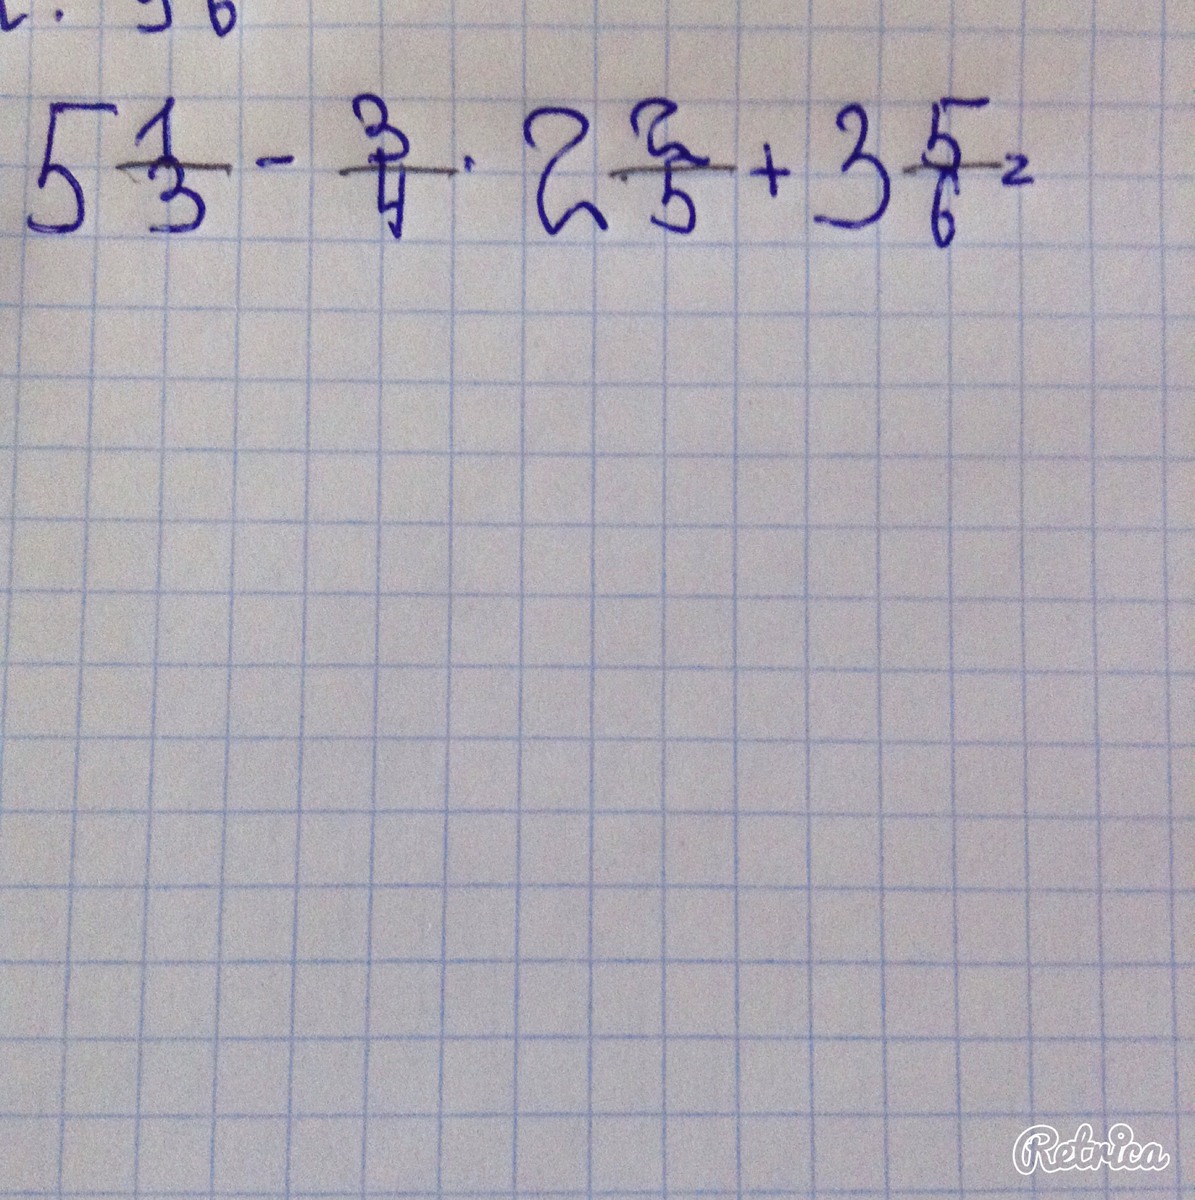 5 1/3 - 3/4 · 2 2/5 + 3 5/6 =
Retrica